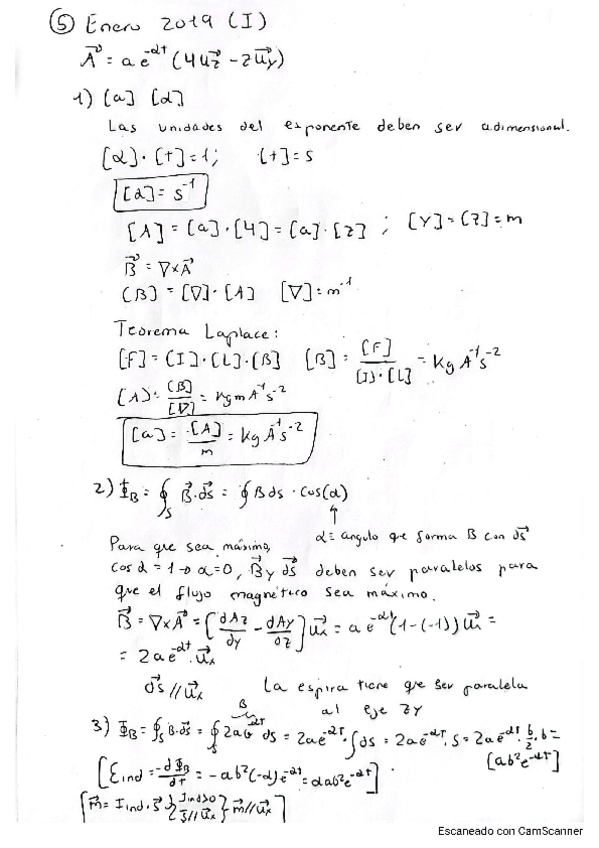 ⑤ Enero 2019 (I)
A⃗ = a e^-αt (y u⃗z - z u⃗y)
1) [a] [α]
Las unidades del exponente deben ser adimensional.
[α]·[t]=1; [t]=s
[α]= s⁻¹
[A] = [a]·[y] = [a]·[z] ; [y]=[z]=m
B⃗ = ∇×A⃗
[B] = [∇]·[A] [∇]=m⁻¹
Teorema Laplace:
[F] = [I]·[L]·[B] [B] = [F]/([I]·[L]) = kg A⁻¹s⁻²
[A] = [B]/[∇] = kg m A⁻¹s⁻²
[a] = [A]/m = kg A⁻¹s⁻²
2) Φ_B = ∮_S B⃗·ds⃗ = ∮ B ds · cos(α)
↑
α = ángulo que forma B con ds⃗
Para que sea máximo,
cos α = 1 → α=0, B⃗ y ds⃗ deben ser paralelos para
que el flujo magnético sea máximo.
B⃗ = ∇×A⃗ = [dAz/dy - dAy/dz] u⃗x = a e^-αt (1-(-1)) u⃗x =
= 2a e^-αt · u⃗x
ds⃗ // u⃗x La espira tiene que ser paralela
al eje ZY
3) Φ_B = ∮_S B⃗·ds⃗ = ∮_S 2a e^-αt ds = 2ae^-αt · ∫ds = 2ae^-αt · S = 2ae^-αt · b/2 · b =
[ab²e^-αt]
[ε_ind = -dΦ_B/dt = -ab²(-α)e^-αt = αab²e^-αt]
[m⃗ = I_ind · S⃗ } I_ind>0 S⃗//u⃗x } m⃗//u⃗x]
Escaneado con CamScanner